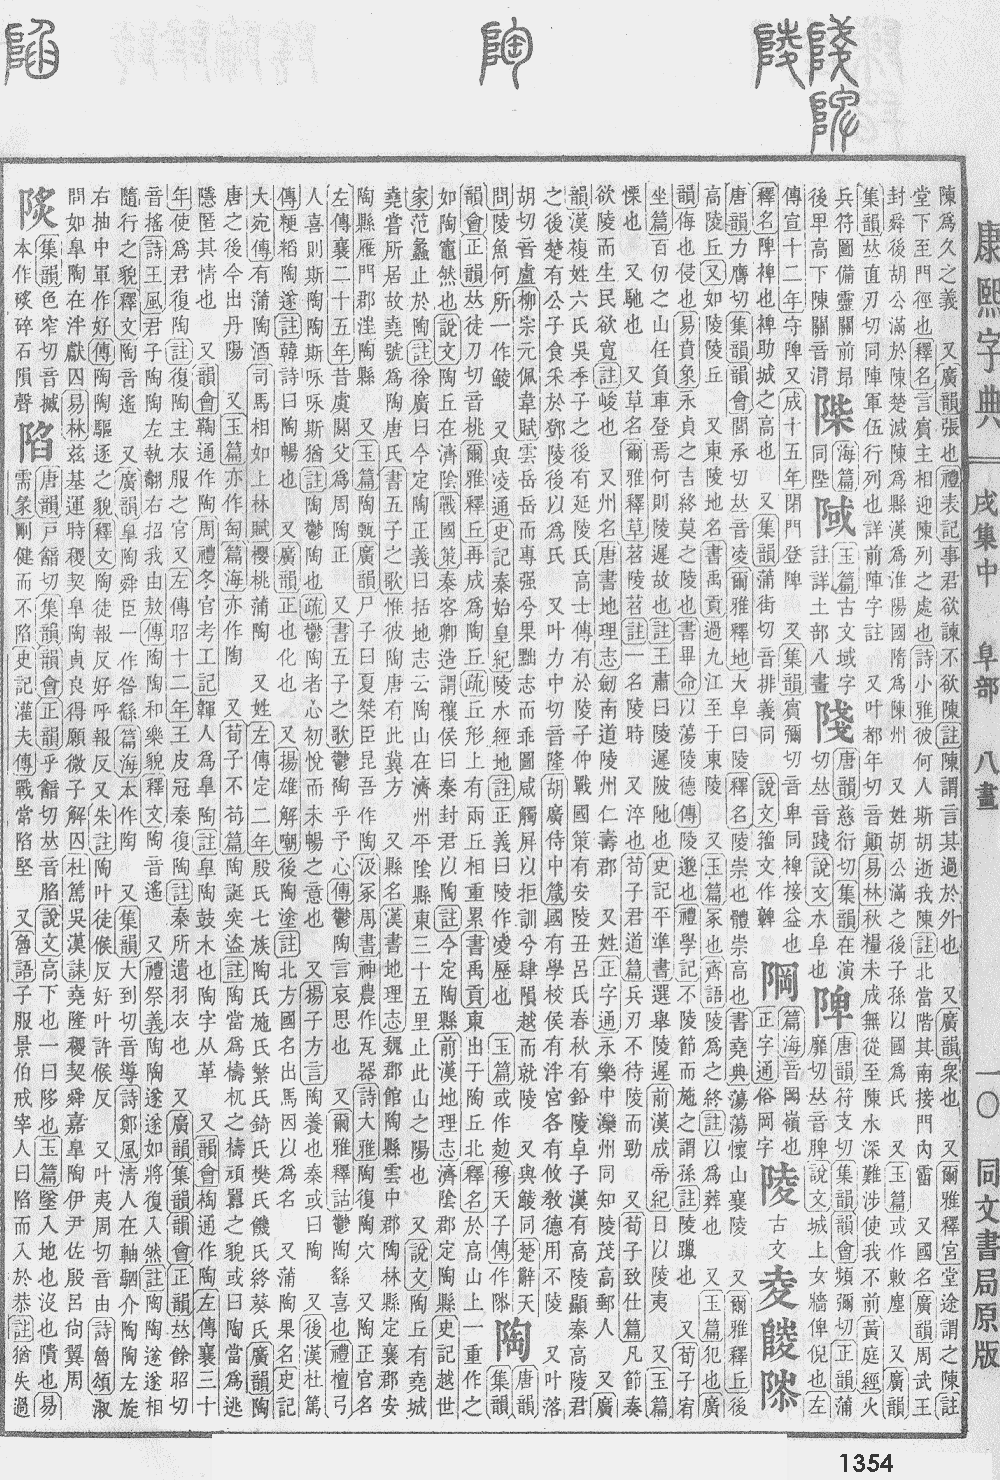 康熙字典 戌集中 阜部 八畫 一〇 同文書局原版
陳爲久之義 又廣韻張也禮表記事君欲諫不欲陳註陳謂言其過於外也 又廣韻衆也 又爾雅釋宮堂途謂之陳註
堂下至門徑也釋名言賓主相迎陳列之處也詩小雅彼何人斯胡逝我陳註北當階其南接門內霤 又國名廣韻周武王
封舜後胡公滿於陳楚滅陳爲縣漢爲淮陽國隋爲陳州 又姓胡公滿之後子孫以國爲氏 又玉篇或作敶塵 又廣韻
集韻𠀤直刃切同陣軍伍行列也詳前陣字註 又叶都年切音顚易林秋糧未成無從至陳水深難涉使我不前黃庭經火
兵符圖備靈關前昻後𤰞高下陳關音涓
陛海篇同陛
玉篇古文域字註詳土部八畫
唐韻慈衍切集韻在演切𠀤音踐說文水阜也
陴唐韻符支切集韻韻會頻彌切正韻蒲靡切𠀤音脾說文城上女牆俾倪也左
傳宣十二年守陴又成十五年閉門登陴 又集韻賓彌切音卑同裨接益也
釋名陴裨也裨助城之高也 又集韻蒲街切音排義同 說文籀文作𩫫
篇海音岡嶺也正字通俗岡字
陵古文夌
唐韻力膺切集韻韻會閭承切𠀤音凌爾雅釋地大阜曰陵釋名陵崇也體崇高也書堯典蕩蕩懷山襄陵 又爾雅釋丘後
高陵丘又如陵陵丘 又東陵地名書禹貢過九江至于東陵 又玉篇冢也齊語陵爲之終註以爲葬也 又玉篇犯也廣
韻侮也侵也易賁象永貞之吉終莫之陵也書畢命以蕩陵德傳陵邈也禮學記不陵節而施之謂孫註陵躐也 又荀子宥
坐篇百仞之山任負車登焉何則陵遲故也註王肅曰陵遲陂阤也史記平準書選舉陵遲前漢成帝紀日以陵夷 又玉篇
慄也 又馳也 又草名爾雅釋草苕陵苕註一名陵時 又淬也荀子君道篇兵刃不待陵而勁 又荀子致仕篇凡節奏
欲陵而生民欲寬註峻也 又州名唐書地理志劒南道陵州仁壽郡 又姓正字通永樂中灤州同知陵茂高郵人 又廣
韻漢複姓六氏吳季子之後有延陵氏高士傳有於陵子仲戰國策有安陵丑呂氏春秋有鉛陵卓子漢有高陵顯秦高陵君
之後楚有公子食采於鄧陵後以爲氏 又叶力中切音隆胡廣侍中箴國有學校侯有泮宮各有攸敎德用不陵 又叶落
胡切音盧柳宗元佩韋賦雲岳岳而專强兮果黜志而乖圖咸觸屏以拒訓兮肆隕越而就陵 又與䱥同楚辭天
問陵魚何所一作鯪 又與凌通史記秦始皇紀陵水經地註正義曰陵作凌歷也 玉篇或作𨹧穆天子傳作𨻫
陶唐韻集韻
韻會正韻𠀤徒刀切音桃爾雅釋丘再成爲陶丘疏丘形上有兩丘相重累書禹貢東出于陶丘北釋名於高山上一重作之
如陶竈然也說文陶丘在濟隂戰國策秦客卿造謂穰侯曰秦封君以陶註今定陶縣前漢地理志濟隂郡定陶縣史記越世
家范蠡止於陶註徐廣曰今定陶正義曰括地志云陶山在濟州平隂縣東三十五里止此山之陽也 又說文陶丘有堯城
堯嘗所居故堯號爲陶唐氏書五子之歌惟彼陶唐有此冀方 又縣名漢書地理志魏郡館陶縣雲中郡陶林縣定襄郡安
陶縣雁門郡𣻳陶縣 又玉篇陶甄廣韻尸子曰夏桀臣昆吾作陶汲冢周書神農作瓦器詩大雅陶復陶穴 又陶正官名
左傳襄二十五年昔虞閼父爲周陶正 又書五子之歌鬱陶乎予心傳鬱陶言哀思也 又爾雅釋詁鬱陶繇喜也禮檀弓
人喜則斯陶陶斯咏咏斯猶註陶鬱陶也疏鬱陶者心初悅而未暢之意也 又揚子方言陶養也秦或曰陶 又後漢杜篤
傳粳稻陶遂註韓詩曰陶暢也 又廣韻正也化也 又揚雄解嘲後陶塗註北方國名出馬因以爲名 又蒲陶果名史記
大宛傳有蒲陶酒司馬相如上林賦櫻桃蒲陶 又姓左傳定二年殷氏七族陶氏施氏繁氏錡氏樊氏饑氏終葵氏廣韻陶
唐之後今出丹陽 又玉篇亦作匋篇海亦作陶 又荀子不苟篇陶誕突盜註陶當爲檮杌之檮頑嚚之貌或曰陶當爲逃
隱匿其情也 又韻會鞠通作陶周禮冬官考工記韗人爲臯陶註臯陶鼓木也陶字从革 又韻會檮通作陶左傳襄三十
年使爲君復陶註復陶主衣服之官又左傳昭十二年王皮冠秦復陶註秦所遺羽衣也 又廣韻集韻韻會正韻𠀤餘昭切
音搖詩王風君子陶陶左執翿右招我由敖傳陶陶和樂貌釋文陶音遙 又禮祭義陶陶遂遂如將復入然註陶陶遂遂相
隨行之貌釋文陶音遙 又廣韻臯陶舜臣一作咎繇篇海本作陶 又集韻大到切音導詩鄭風淸人在軸駟介陶陶左旋
右抽中軍作好傳陶陶驅逐之貌釋文陶徒報反好呼報反又朱註陶叶徒候反好叶許候反 又叶夷周切音由詩魯頌淑
問如臯陶在泮獻囚易林兹基運時稷契臯陶貞良得願微子解囚杜篤吳漢誄堯隆稷契舜嘉臯陶伊尹佐殷呂尙翼周
集韻色窄切音摵本作㱹碎石隕聲
陷唐韻戸韽切集韻韻會正韻乎韽切𠀤音臽說文高下也一曰陊也玉篇墜入地也沒也隤也易
需彖剛健而不陷史記灌夫傳戰常陷堅 又魯語子服景伯戒宰人曰陷而入於恭註猶失過
1354